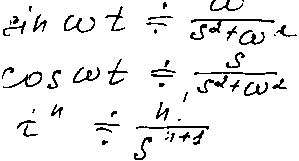 sin ωt ≑ ω/(s²+ω²)
cos ωt ≑ s/(s²+ω²)
tⁿ ≑ n!/sⁿ⁺¹